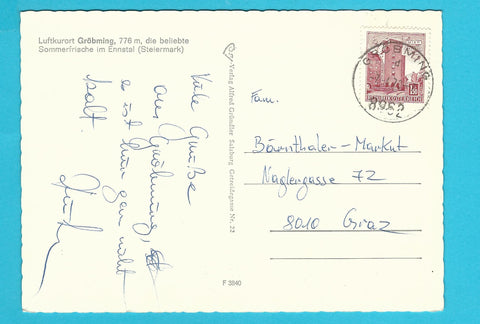 Luftkurort Gröbming, 776 m, die beliebte
Sommerfrische im Ennstal (Steiermark)
Viele Grüße
aus Gröbming,
es ist hier gar nicht
kalt.
Cosy-Verlag Alfred Gründler Salzburg Getreidegasse Nr. 22
F 3840
GRÖBMING
8962
REPUBLIK ÖSTERREICH
Fam.
Bärnthaler-Markut
Naglergasse 72
8010 Graz